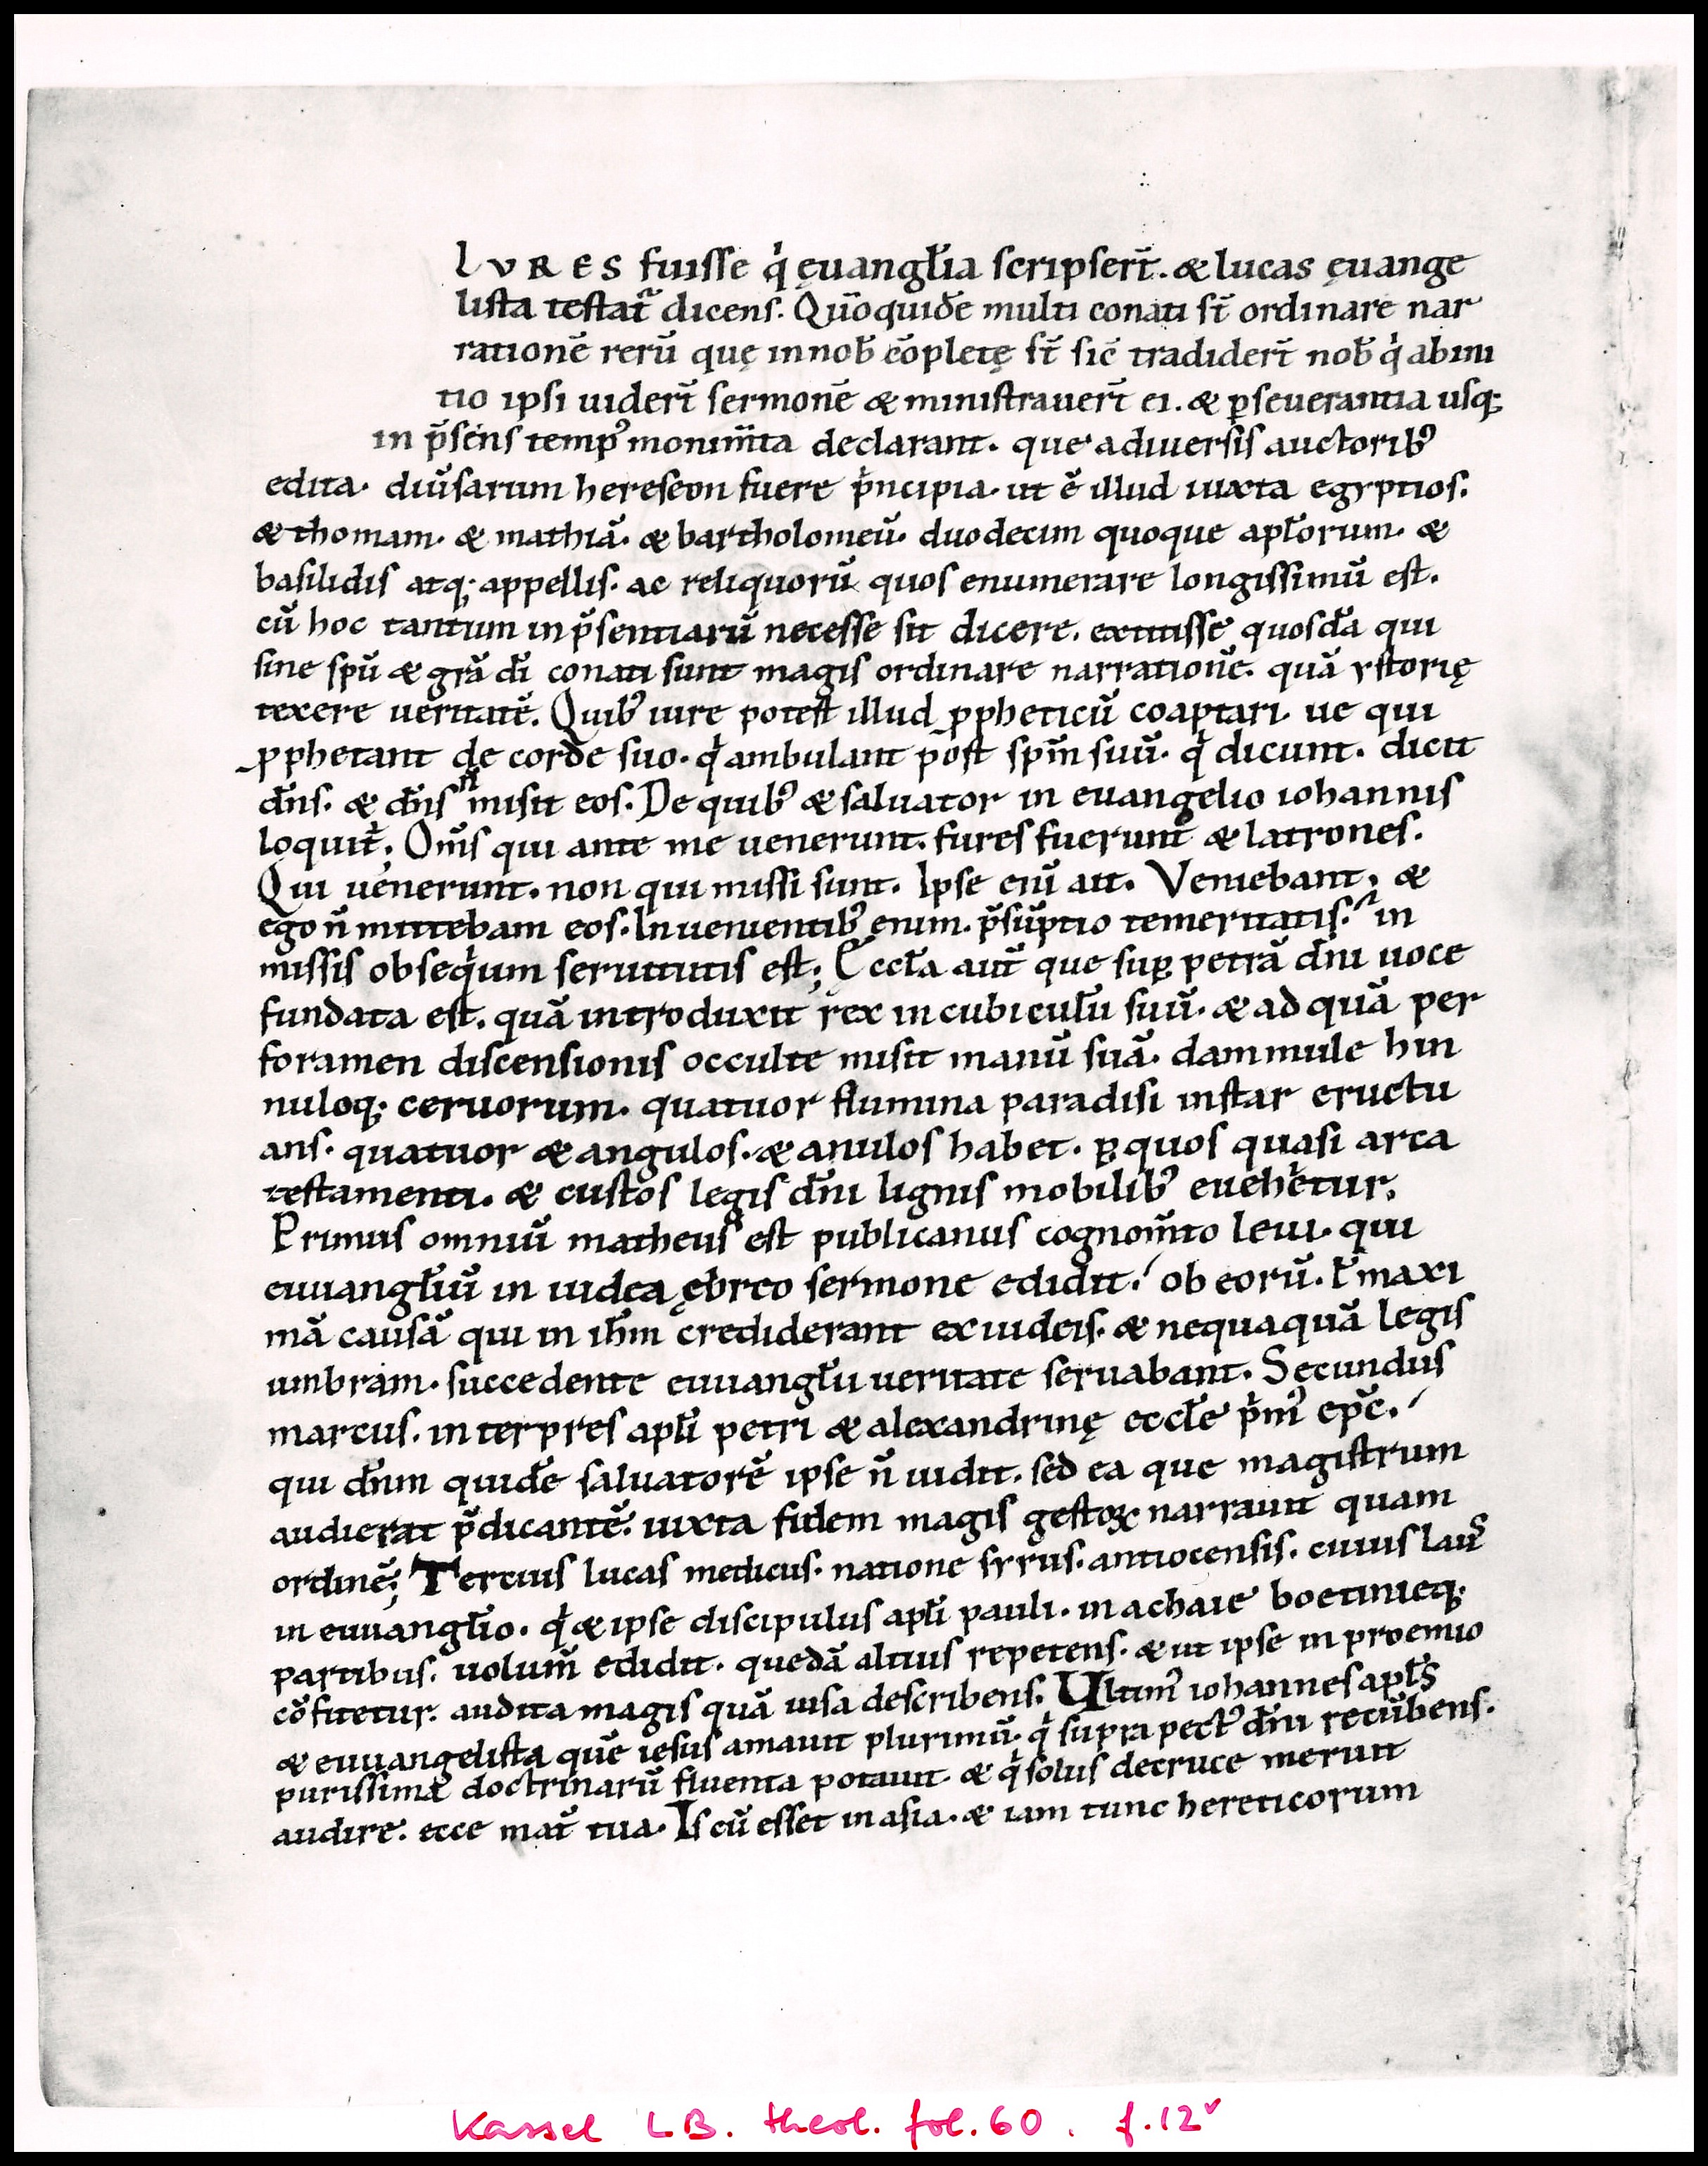 lVRES fuisse q̇ ęuangl̄ia scripser̄t. & lucas ęuange
lista testat᷑ dicens. Qūoquidē multi conati st̄ ordinare nar
rationē rerū quę innob̄ cōpletę st̄ sic̄ tradider̄t nob̄ q̇ abini
tio ipsi uider̄t sermonē & ministrauer̄t ei. & ꝑseuerantia usq;
in p̄sens temp᷒ monim̄ta declarant. que adiuersis auctorib᷒
edita. diu͛sarum hereseon fuere ṗncipia. ut ē illud iuxta egyptios.
& thomam. & mathiā. & bartholomeū. duodecim quoque apl̄orum. &
basilidis atq; appellis. ac reliquorū quos enumerare longissimū est.
cū hoc tantum in p̄sentiarū necesse sit dicere. extitisse quosdā qui
sine spū & grā dī conati sunt magis ordinare narrationē. quā ystorię
texere ueritatē. Quib᷒ iure potest illud ꝓpheticū coaptari. ue qui
ꝓphetant de corde suo. q̇ ambulant post spm̄ suū. q̇ dicunt. dicit
dn̄s. & dn̄s n̄ misit eos. De quib᷒ & saluator in euangelio iohannis
loquit᷑; Om̄s qui ante me uenerunt. fures fuerunt & latrones.
Qui uenerunt. non qui missi sunt. Ipse eni̅ ait. Veniebant, &
ego n̄ mittebam eos. In uenientib᷒ enim. p̄sūptio temeritatis. in
missis obseq̇um seruitutis est; Eccl̄a aut̄ que suꝑ petrā dn̄i uoce
fundata est. quā introduxit rex in cubicul̄u suū. & ad quā per
foramen discensionis occulte misit manū suā. dammule hin
nuloq; ceruorum. quatuor flumina paradisi instar eructu
ans. quatuor & angulos. & anulos habet. ꝑ quos quasi arca
testamenti. & custos legis dn̄i lignis mobilib᷒ eueh̄etur;
Primus omniū matheus est publicanus cognom̄to leui. qui
euuangl̄iū in iudea ębreo sermone edidit. ob eorū. l̄ maxi
mā causā qui in ih̄m crediderant ex iudeis. & nequaquā legis
umbram. succedente euuangl̄ii ueritate seruabant. Secundus
marcus. interpres apl̄i petri & alexandrinę eccl̄e ṗm᷒ epc̄.
qui dn̄m quidē saluatorē ipse n̄ uidit. sed ea que magistrum
audierat p̄dicantē. iuxta fidem magis gestoꝝ narrauit quam
ordinē; Tercius lucas medicus. natione syrus. antiocensis. cuius laus̄
in euuangl̄io. q̇ & ipse discipulus apl̄i pauli. in achaie boetinieq;
partibus. uolum̄ edidit. quedā altius repetens. & ut ipse in proemio
cōfitetur. audita magis quā uisa describens. Ultim᷒ iohannes apl̄s
& euuangelista quē iesus amauit plurimū. q̇ supra pect᷒ dn̄i recūbens.
purissima doctrinarū fluenta potauit. & q̇ solus decruce meruit
audire. ecce mat̄ tua. Is cū esset in asia. & iam tunc hereticorum
Kassel LB. theol. fol. 60. f. 12ᵛ